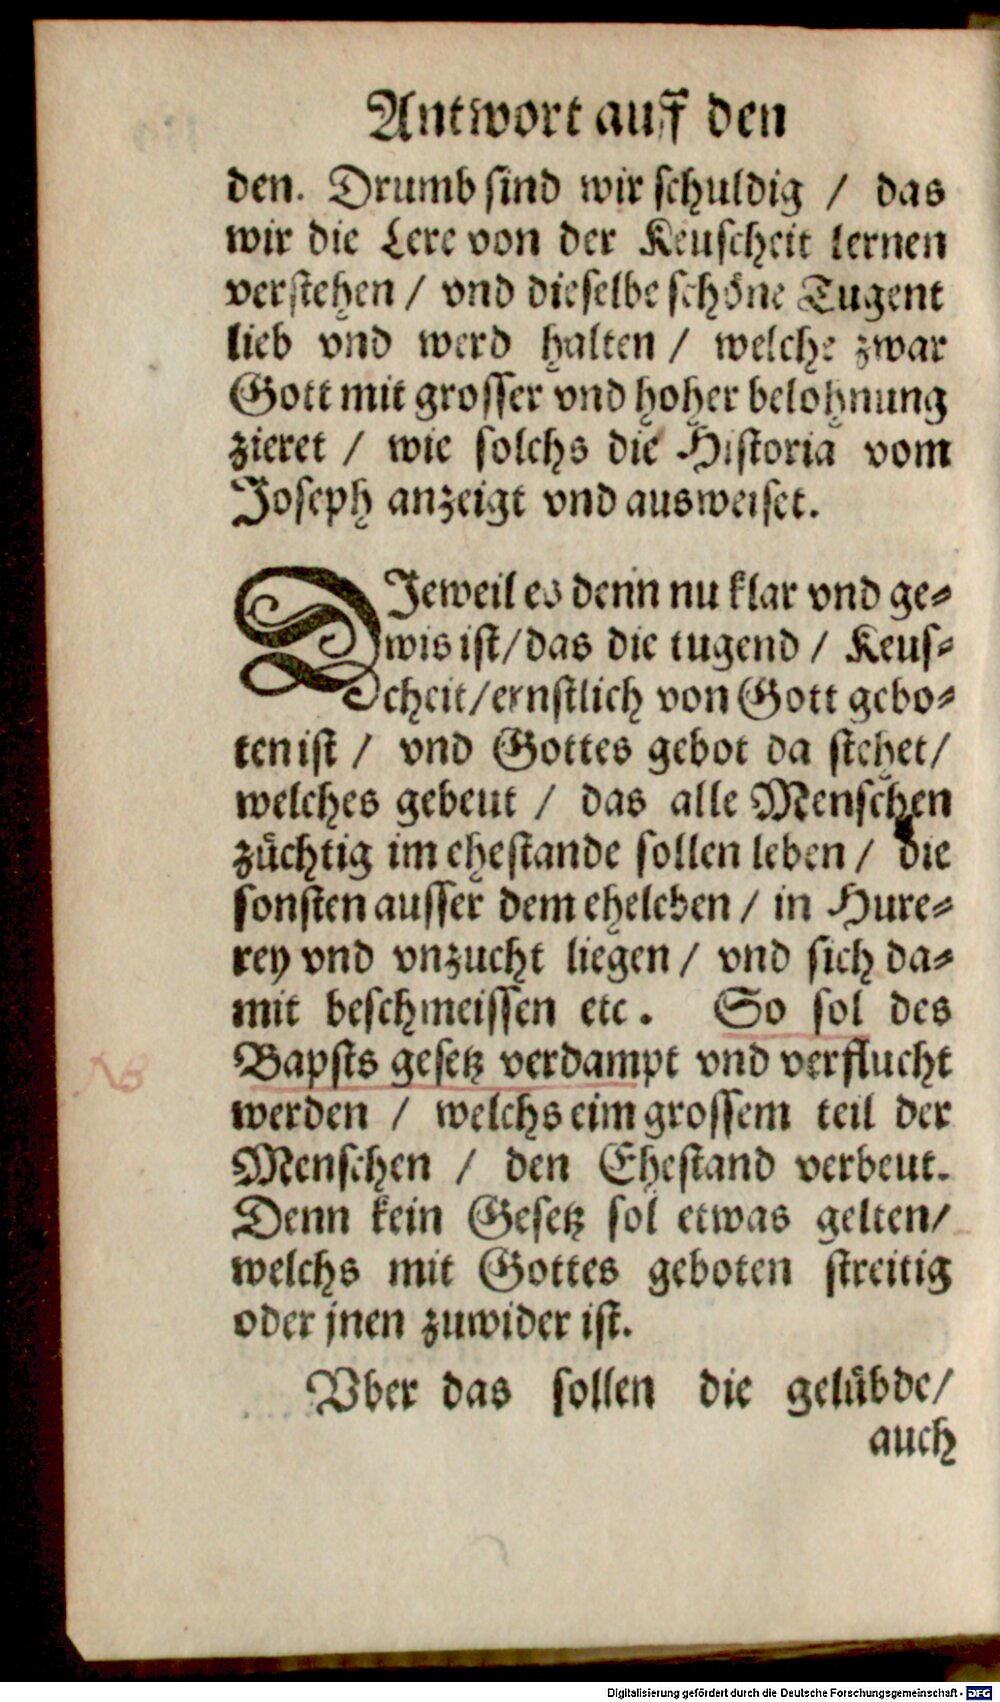 Antwort auff den
den. Drumb sind wir schuldig / das
wir die Lere von der Keuscheit lernen
verstehen / vnd dieselbe schöne Tugent
lieb vnd werd halten / welche zwar
Gott mit grosser vnd hoher belohnung
zieret / wie solchs die Historia vom
Joseph anzeigt vnd ausweiset.
DJeweil es denn nu klar vnd ge-
wis ist / das die tugend / Keus-
cheit / ernstlich von Gott gebo-
ten ist / vnd Gottes gebot da stehet /
welches gebeut / das alle Menschen
züchtig im ehestande sollen leben / die
sonsten ausser dem eheleben / in Hure-
rey vnd vnzucht liegen / vnd sich da-
mit beschmeissen etc. So sol des
Bapsts gesetz verdampt vnd verflucht
NB
werden / welchs eim grossem teil der
Menschen / den Ehestand verbeut.
Denn kein Gesetz sol etwas gelten /
welchs mit Gottes geboten streitig
oder jnen zuwider ist.
Vber das sollen die gelübde /
auch
Digitalisierung gefördert durch die Deutsche Forschungsgemeinschaft - DFG